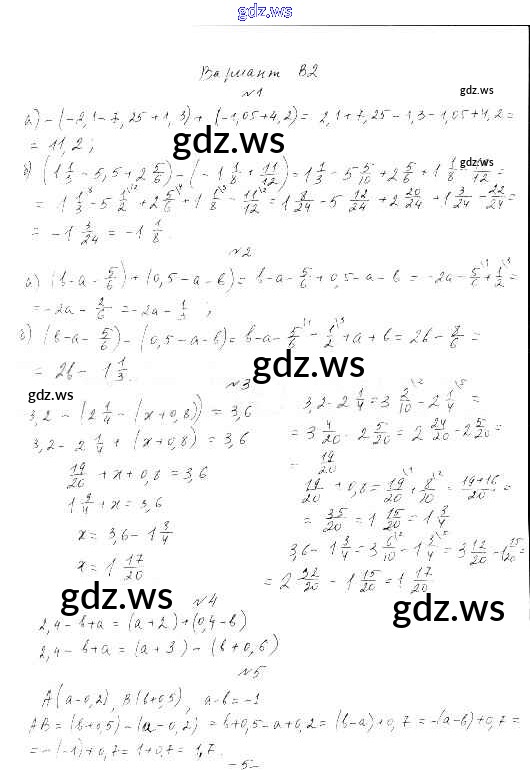 gdz.ws
Вариант В2
№1
gdz.ws
а) -(-2,1-7,25+1,3)+(-1,05+4,2)= 2,1+7,25-1,3-1,05+4,2=
= 11,2;
gdz.ws
gdz.ws
б) (1 1/3 - 5,5 + 2 5/6) - (-1 1/8 + 11/12) = 1 1/3 - 5 5/10 + 2 5/6 + 1 1/8 - 11/12 =
= 1 1/3 - 5 1/2 + 2 5/6 + 1 1/8 - 11/12 = 1 8/24 - 5 12/24 + 2 20/24 + 1 3/24 - 22/24 =
= -1 3/24 = -1 1/8.
№2
а) (b-a-5/6)+(0,5-a-b)= b-a-5/6+0,5-a-b = -2a-5/6+1/2=
= -2a - 2/6 = -2a - 1/3;
б) (b-a-5/6)-(0,5-a-b)= b-a-5/6-1/2+a+b = 2b-8/6=
= 2b - 1 1/3.
gdz.ws
№3
gdz.ws
3,2-(2 1/4-(x+0,8))=3,6
3,2-2 1/4+(x+0,8)=3,6
19/20+x+0,8=3,6
1 3/4+x=3,6
x=3,6-1 3/4
x=1 17/20
3,2-2 1/4=3 2/10-2 1/4=
=3 4/20-2 5/20=2 24/20-2 5/20=
=19/20
19/20+0,8=19/20+8/10=(19+16)/20=
=35/20=1 15/20=1 3/4
3,6-1 3/4=3 6/10-1 3/4=3 12/20-1 15/20=
=2 32/20-1 15/20=1 17/20
gdz.ws
gdz.ws
№4
2,4-b+a=(a+2)+(0,4-b)
2,4-b+a=(a+3)-(b+0,6)
№5
A(a-0,2), B(b+0,5), a-b=-1
AB=(b+0,5)-(a-0,2)=b+0,5-a+0,2=(b-a)+0,7=-(a-b)+0,7=
=-(-1)+0,7=1+0,7=1,7.
-5-